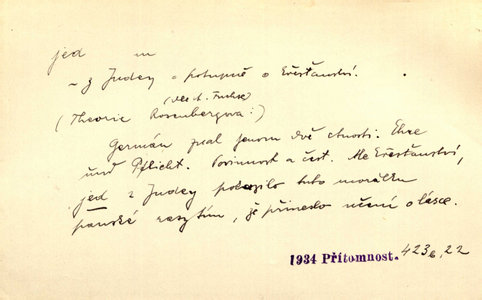 jed m
~ z Judey = potupně o křesťanství.
(dle A. Fuchse)
(Theorie Rosenbergova:)
Germán znal jenom dvě ctnosti. Ehre
und Pflicht. Povinnost a čest. Ale křesťanství,
jed z Judey pokazilo tuto morálku
panské rasy tím, že přineslo učení o lásce.
1934 Přítomnost. 423b, 22